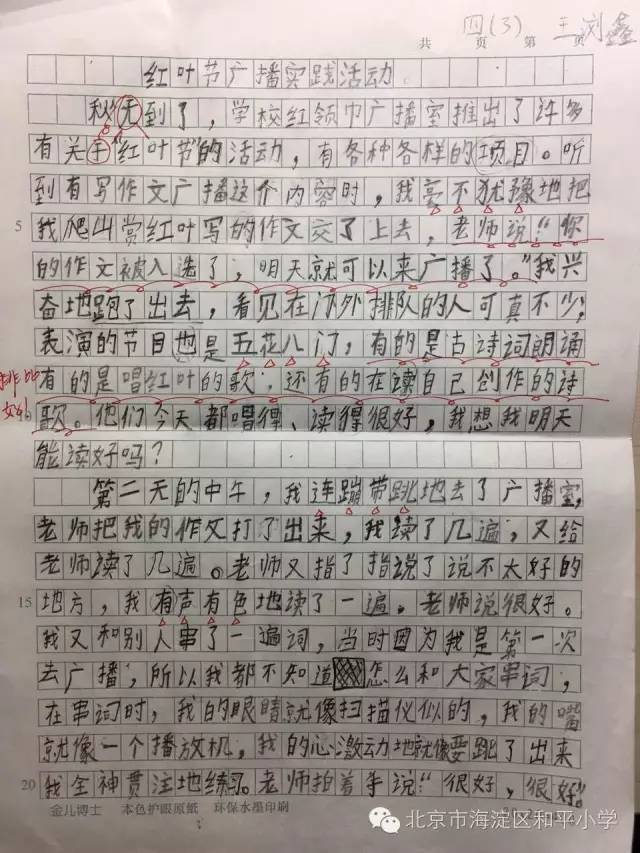 四(3) 王浏鑫
共 页 第 页
红叶节广播实践活动
秋天到了，学校红领巾广播室推出了许多
有关于“红叶节”的活动，有各种各样的项目。听
到有写作文广播这个内容时，我毫不犹豫地把
5 我爬山赏红叶写的作文交了上去，老师说：“你
的作文被入选了，明天就可以来广播了。”我兴
奋地跑了出去，看见在门外排队的人可真不少；
表演的节目也是五花八门，有的是古诗词朗诵
排比
有的是唱红叶的歌，还有的在读自己创作的诗
歌。他们今天都唱得、读得很好，我想我明天
能读好吗？
第二天的中午，我连蹦带跳地去了广播室，
老师把我的作文打了出来，我读了几遍，又给
老师读了几遍。老师又指了指说了说不太好的
15 地方，我有声有色地读了一遍。老师说很好。
我又和别人串了一遍词，当时因为我是第一次
去广播，所以我都不知道怎么和大家串词；
在串词时，我的眼睛就像扫描仪似的，我的嘴
就像一个播放机，我的心激动地就像要跳了出来
20 我全神贯注地练习。老师拍着手说：“很好，很好”。
金儿博士 本色护眼原纸 环保水墨印刷
北京市海淀区和平小学